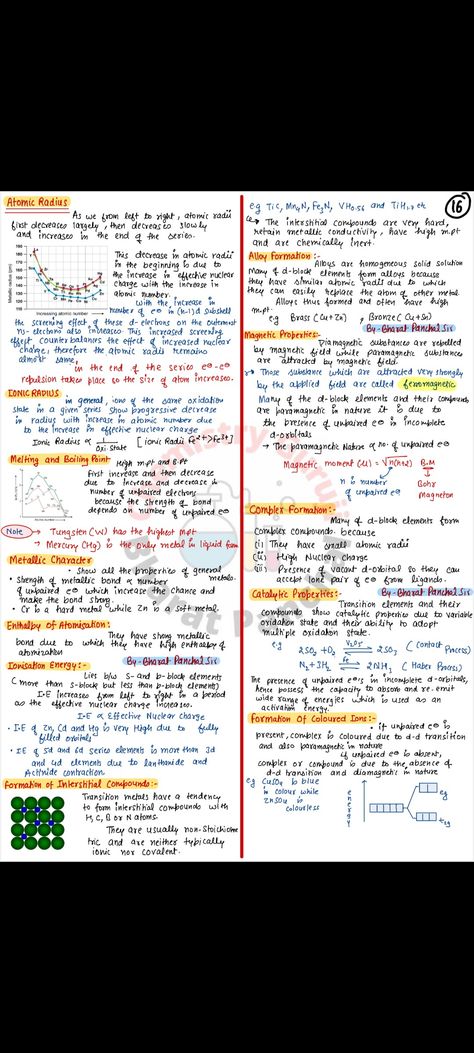 Atomic Radius
As we from left to right, atomic radii
first decreases largely, then decreases slowly
and increases in the end of the series.
This decrease in atomic radii
in the beginning is due to
the increase in effective nuclear
charge with the increase in
atomic number.
Increasing atomic number
with the increase in
number of e⊖ in (n-1)d subshell
the screening effect of these d-electrons on the outermost
ns-electrons also increases. This increased screening
effect counter balances the effect of increased nuclear
charge, therefore the atomic radii remains
almost same,
in the end of the series e⊖-e⊖
repulsion takes place so the size of atom increases.
IONIC RADIUS
in general, ions of the same oxidation
state in a given series show progressive decrease
in radius with increase in atomic number due
to the increase in effective nuclear charge
Ionic Radius ∝ 1/Oxi State [ionic Radii Fe²⁺>Fe³⁺]
Melting and Boiling Point
High m.pt and B.Pt
First increase and then decrease
due to increase and decrease in
number of unpaired electrons
because the strength of bond
depends on number of unpaired e⊖
Note → Tungsten (W) has the highest mpt
→ Mercury (Hg) is the only metal in liquid form
Metallic Character
• Show all the properties of general metals.
• Strength of metallic bond ∝ number
of unpaired e⊖ which increase the chance and
make the bond strong.
• Cr is a hard metal while Zn is a soft metal.
Enthalpy of Atomisation:
They have strong metallic
bond due to which they have high enthalpy of
atomization
By - Bharat Panchal Sir
Ionisation Energy:-
Lies b/w S- and p-block elements
(more than S-block but less than p-block elements)
I.E increases from left to right in a period
as the effective nuclear charge increases.
I.E ∝ Effective Nuclear Charge
• I.E of Zn, Cd and Hg is very High due to fully
filled orbitals
• IE of 5d and 6d series elements is more than 3d
and 4d elements due to lanthanide and
Actinide contraction.
Formation of Interstitial Compounds:-
Transition metals have a tendency
to form interstitial compounds with
H, C, B or N atoms.
They are usually non-stoichiome
tric and are neither typically
ionic nor covalent.
16
eg TiC, Mn₄N, Fe₃N, VH0.56 and TiH1.7 etc
→ The interstitial compounds are very hard,
retain metallic conductivity, have high m.pt
and are chemically inert.
Alloy Formation:-
Alloys are homogeneous solid solution
Many of d-block elements form alloys because
they have similar atomic radii due to which
they can easily replace the atom of other metal.
Alloys thus formed and often have high
m.pt.
e.g Brass (Cu+Zn), Bronze (Cu+Sn)
By - Bharat Panchal Sir
Magnetic Properties:-
Diamagnetic substances are repelled
by magnetic field while paramagnetic substances
are attracted by magnetic field.
Those substance which are attracted very strongly
by the applied field are called ferromagnetic
Many of the d-block elements and their compounds
are paramagnetic in nature it is due to
the presence of unpaired e⊖ is incomplete
d-orbitals
→ The paramagnetic Nature ∝ no. of unpaired e⊖
Magnetic moment (μ) = √n(n+2) B.M
n is number of unpaired e⊖
Bohr Magneton
Complex Formation:-
Many of d-block elements form
Complex compounds because
(i) They have small atomic radii
(ii) High Nuclear charge
(iii) Presence of vacant d-orbital so they can
accept lone pair of e⊖ from ligands.
Catalytic Properties:-
By - Bharat Panchal Sir
Transition elements and their
compounds show catalytic properties due to variable
oxidation state and their ability to adopt
multiple oxidation state.
e.g 2SO₂ + O₂ V₂O₅ ⇌ 2SO₃ (Contact Process)
N₂ + 3H₂ Fe ⇌ 2NH₃ (Haber Process)
The presence of unpaired e⊖'s in incomplete d-orbitals,
hence possess the capacity to absorb and re-emit
wide range of energies which is used as an
activation energy.
Formation Of Coloured Ions:-
• if unpaired e⊖ is
present, complex is coloured due to d-d transition
and also paramagnetic in nature
if unpaired e⊖ is absent,
complex or compound is due to the absence of
d-d transition and diamagnetic in nature
eg CuSO₄ is blue
in colour while
ZnSO₄ is
colourless
energy
eg
t₂g